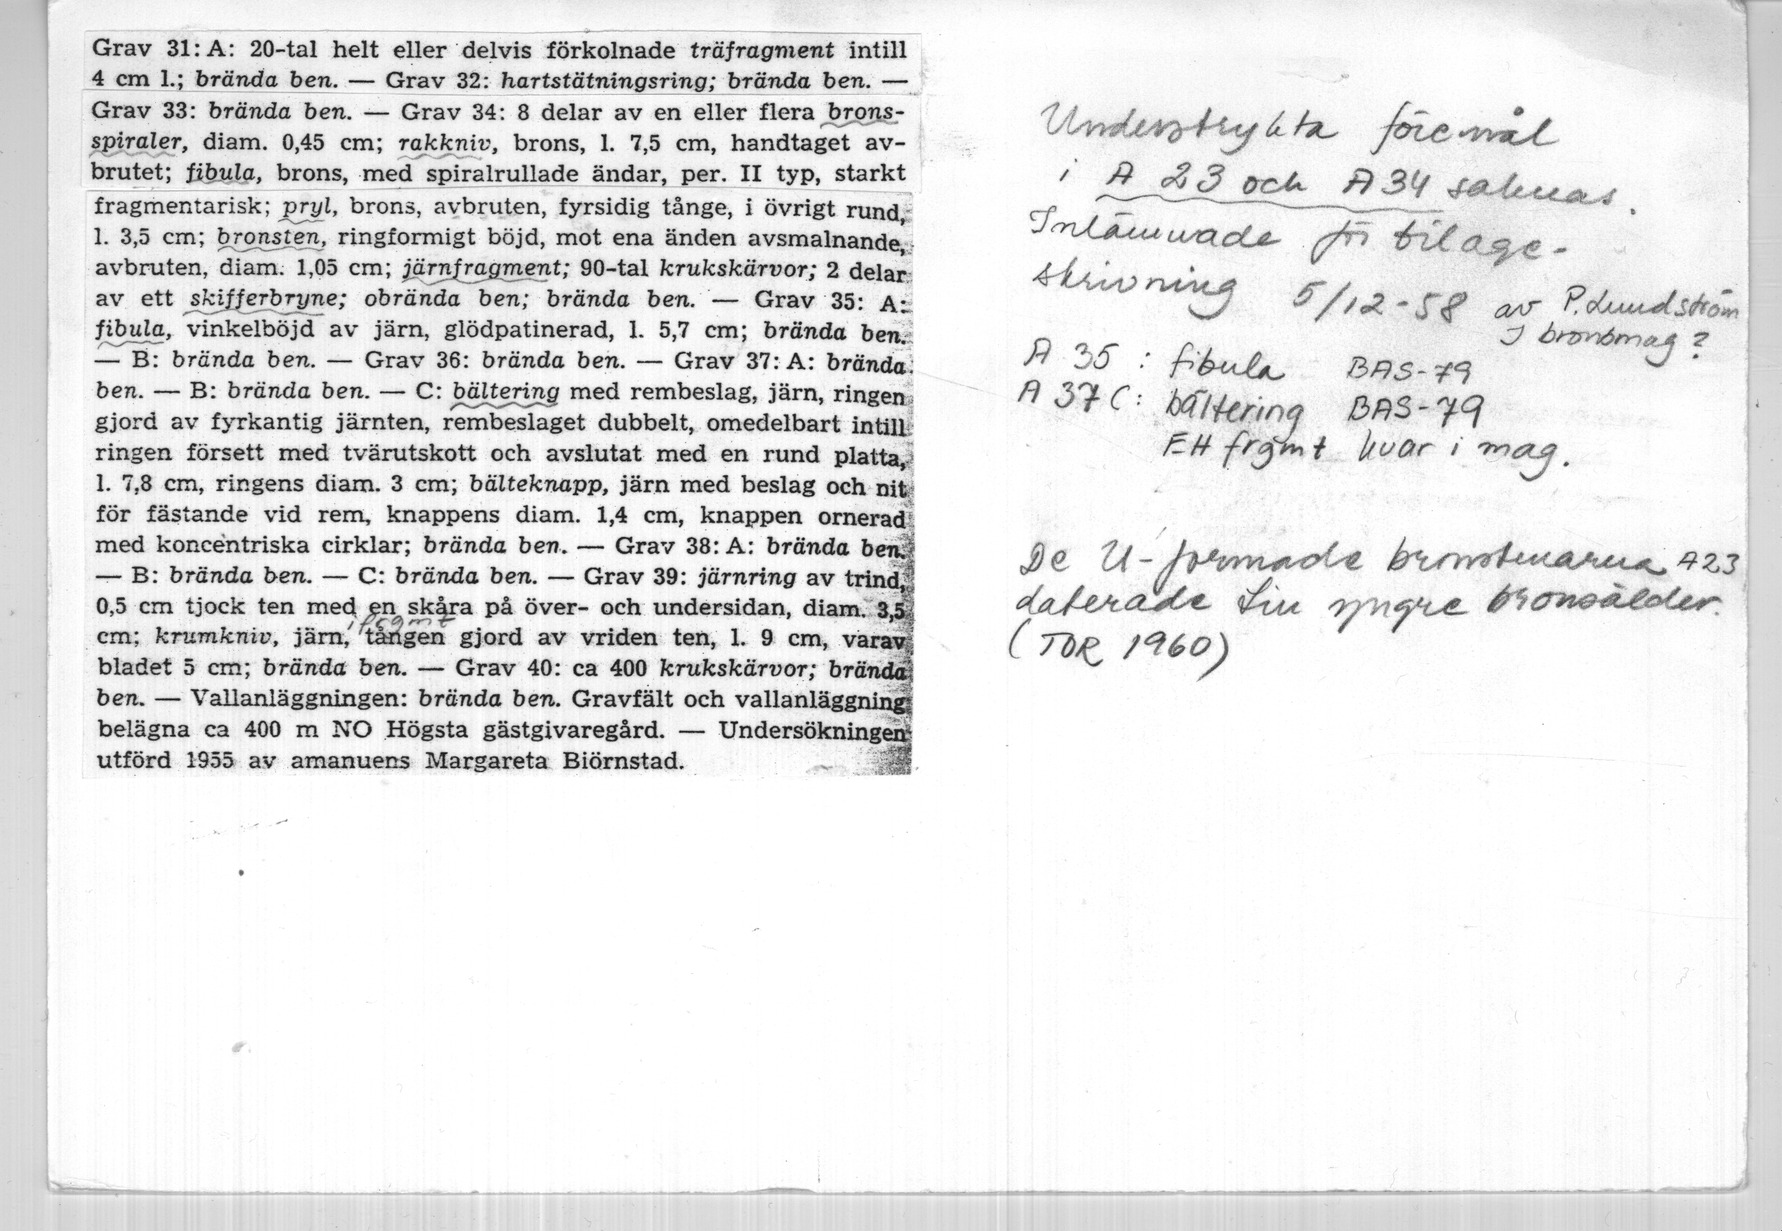 Grav 31: A: 20-tal helt eller delvis förkolnade träfragment intill
4 cm l.; brända ben. — Grav 32: hartstätningsring; brända ben. —
Grav 33: brända ben. — Grav 34: 8 delar av en eller flera brons-
spiraler, diam. 0,45 cm; rakkniv, brons, l. 7,5 cm, handtaget av-
brutet; fibula, brons, med spiralrullade ändar, per. II typ, starkt
fragmentarisk; pryl, brons, avbruten, fyrsidig tånge, i övrigt rund,
l. 3,5 cm; bronsten, ringformigt böjd, mot ena änden avsmalnande,
avbruten, diam. 1,05 cm; järnfragment; 90-tal krukskärvor; 2 delar
av ett skifferbryne; obrända ben; brända ben. — Grav 35: A:
fibula, vinkelböjd av järn, glödpatinerad, l. 5,7 cm; brända ben.
— B: brända ben. — Grav 36: brända ben. — Grav 37: A: brända
ben. — B: brända ben. — C: bältering med rembeslag, järn, ringen
gjord av fyrkantig järnten, rembeslaget dubbelt, omedelbart intill
ringen försett med tvärutskott och avslutat med en rund platta,
l. 7,8 cm, ringens diam. 3 cm; bälteknapp, järn med beslag och nit
för fästande vid rem, knappens diam. 1,4 cm, knappen ornerad
med koncentriska cirklar; brända ben. — Grav 38: A: brända ben.
— B: brända ben. — C: brända ben. — Grav 39: järnring av trind,
0,5 cm tjock ten med en skåra på över- och undersidan, diam. 3,5
i frgmt
cm; krumkniv, järn, tången gjord av vriden ten, l. 9 cm, varav
bladet 5 cm; brända ben. — Grav 40: ca 400 krukskärvor; brända
ben. — Vallanläggningen: brända ben. Gravfält och vallanläggning
belägna ca 400 m NO Högsta gästgivaregård. — Undersökningen
utförd 1955 av amanuens Margareta Biörnstad.
Understrykta föremål
i A 23 och A 34 saknas.
Inlämnade för bilage-
skrivning 5/12-58 av P. Lundström
I bronsmag?
A 35 : fibula BAS-79
A 37 C: bältering BAS-79
EH frgmt kvar i mag.
De U-formade bronstenarna A23
daterade t.in yngre bronsålder.
(TOR 1960)